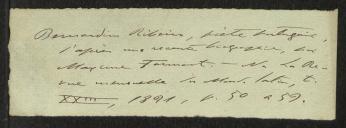 Bernardim Ribeiro, poète portugais,
d'après une récente biographie, par
Maxime Formont. — Na La Re-
vue mensuelle du Monde latin, t.
XXIII, 1891, p. 50 a 59.